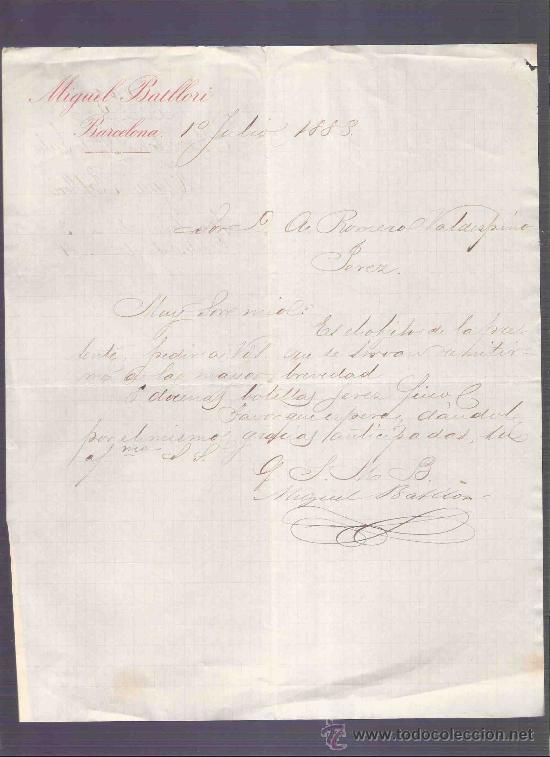 Miguel Batllori
Barcelona. 10 Julio 1883.
Sor. D. A. Romero Valdespino
Jerez.
Muy Sor. mio:
Es el objeto de la pre
sente, pedir a Vd. que se sirva remitir
me a la mayor brevedad
docenas botellas Jerez fino C
Favor que espera, dandole
por el mismo, gracias anticipadas, su
af.mo S. S.
Q. S. M. B.
Miguel Batllori
www.todocoleccion.net